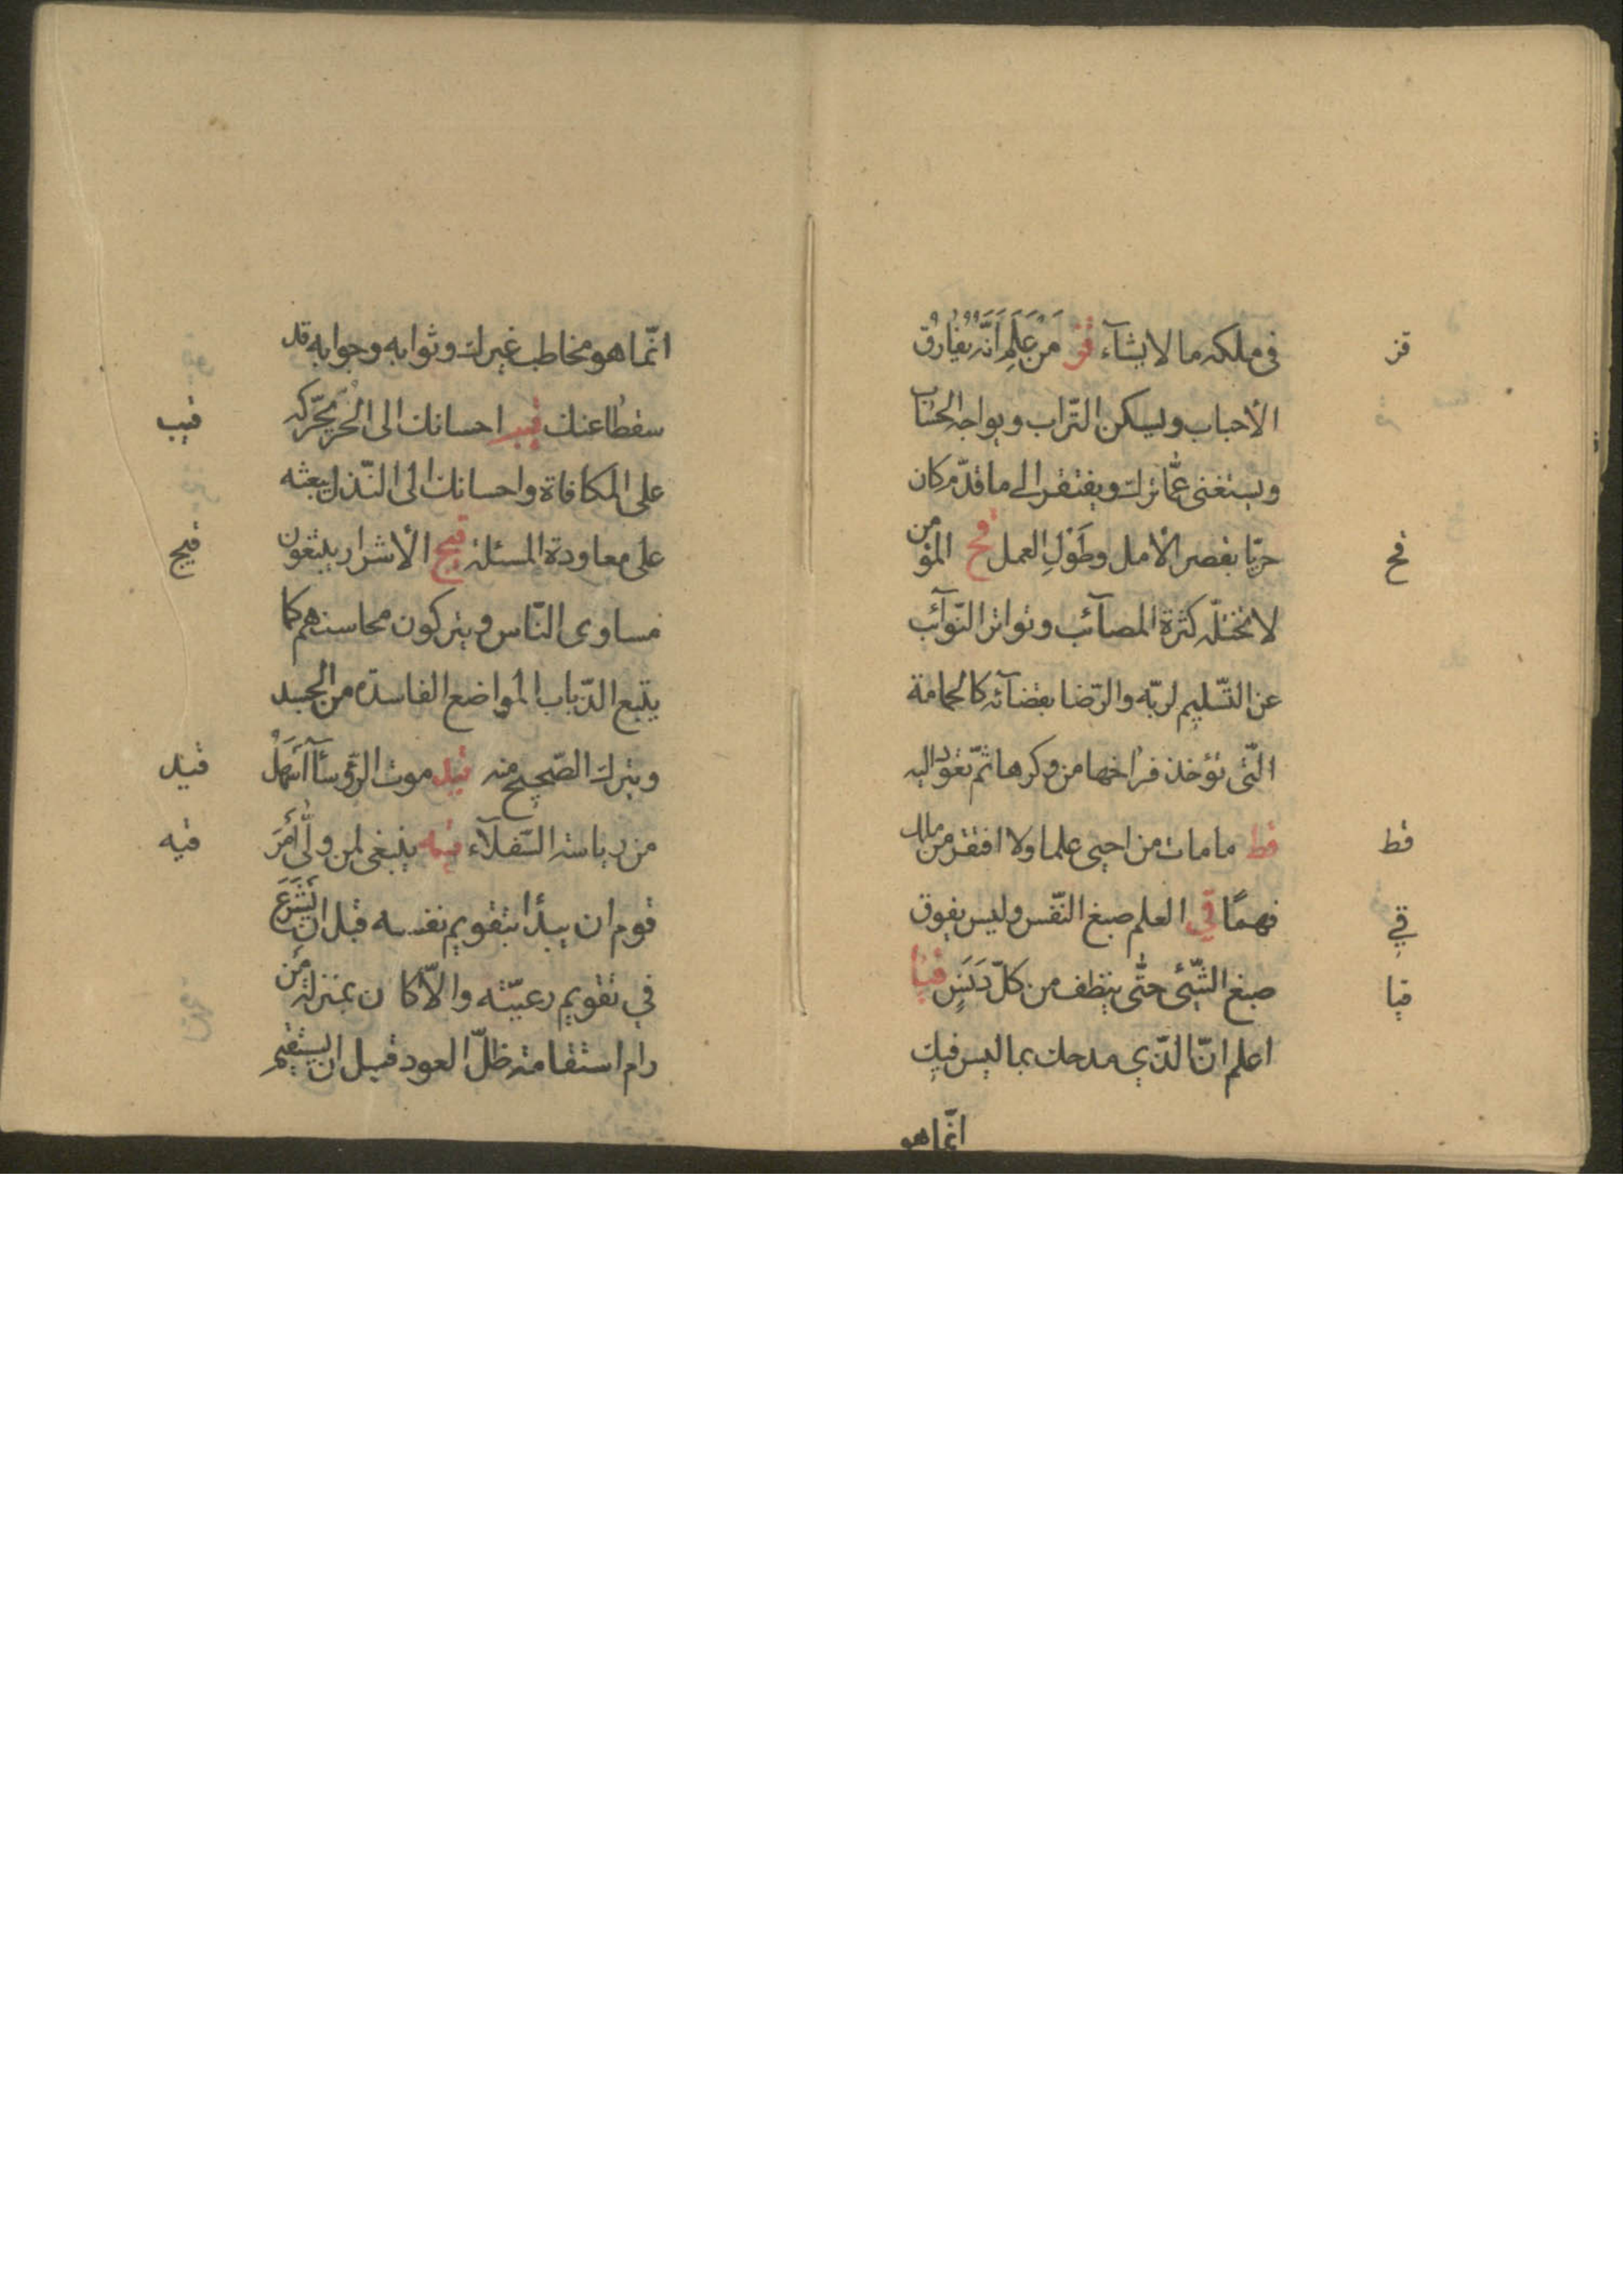 قز
فى ملكه ما لا يشآء قز مَن عَلِمَ اَنَّهُ يُفارِقُ
الأحباب ويسكن التّراب ويواجه الحساب
ويستغنى عمّا ترك ويفتقر الى ما قدّم كان
قح
حريّا بقصر الأمل وطَوْلِ العمل قح المؤمن
لا تختله كثرة المصآئب وتواتر النّوآئب
عن التّسليم لربّه والرّضا بقضآئه كالحمامة
الّتى تؤخذ فراخها من وكرها ثمّ تعود اليه
قط
قط ما مات من احيى علما ولا افتقر من ملك
قي
فهمًا قي العلم صبغ النّفس وليس يفوق
قيا
صبغ الشّيئ حتّى ينظف من كلّ دَنَسٍ قيا
اعلم انّ الّذي مدحك بما ليس فيك
انّما هو
انّما هو مخاطب غيرك وثوابه وجوابه قد
قيب
سقطا عنك قيب احسانك الى الحُرّ يحّركه
على المكافاة واحسانك الى النّذل يبعثه
قيج
على معاودة المسئلة قيج الأشرار يتبّعون
مساوى النّاس ويتركون محاسنهم كما
يتّبع الذّباب المواضع الفاسدة من الجسد
قيد
ويترك الصّحيح منه قيد موت الرّؤسآ اَسْهَلُ
قيه
من رياسة السّفلآء قيه ينبغى لمن ولّى أَمْرَ
قوم ان يبدأ بتقويم نفسه قبل ان يَشْرَعَ
في تقويم رعيّته والاّ كان بمنزلة مَن
رام استقامة ظلّ العود قبل ان يستقيم